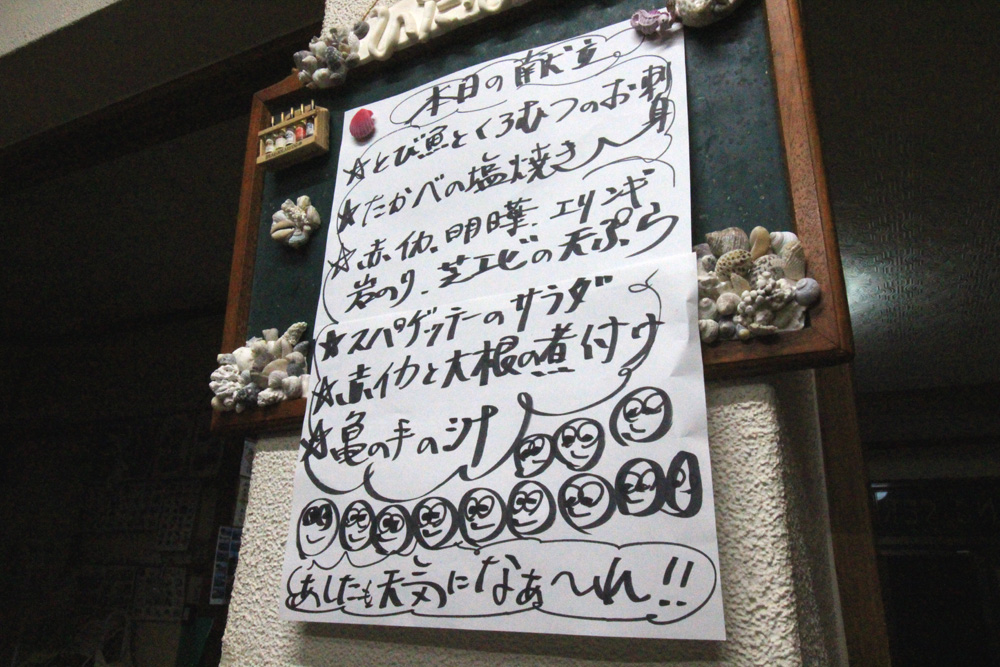 本日の献立。
☆とび魚とくろむつのお刺身
☆たかべの塩焼き
☆赤イカ、明日葉、エリンギ
岩のり、芝エビの天ぷら
☆スパゲッテーのサラダ
☆赤イカと大根の煮付け
☆亀の手の汁
あしたも天気になぁ～れ!!